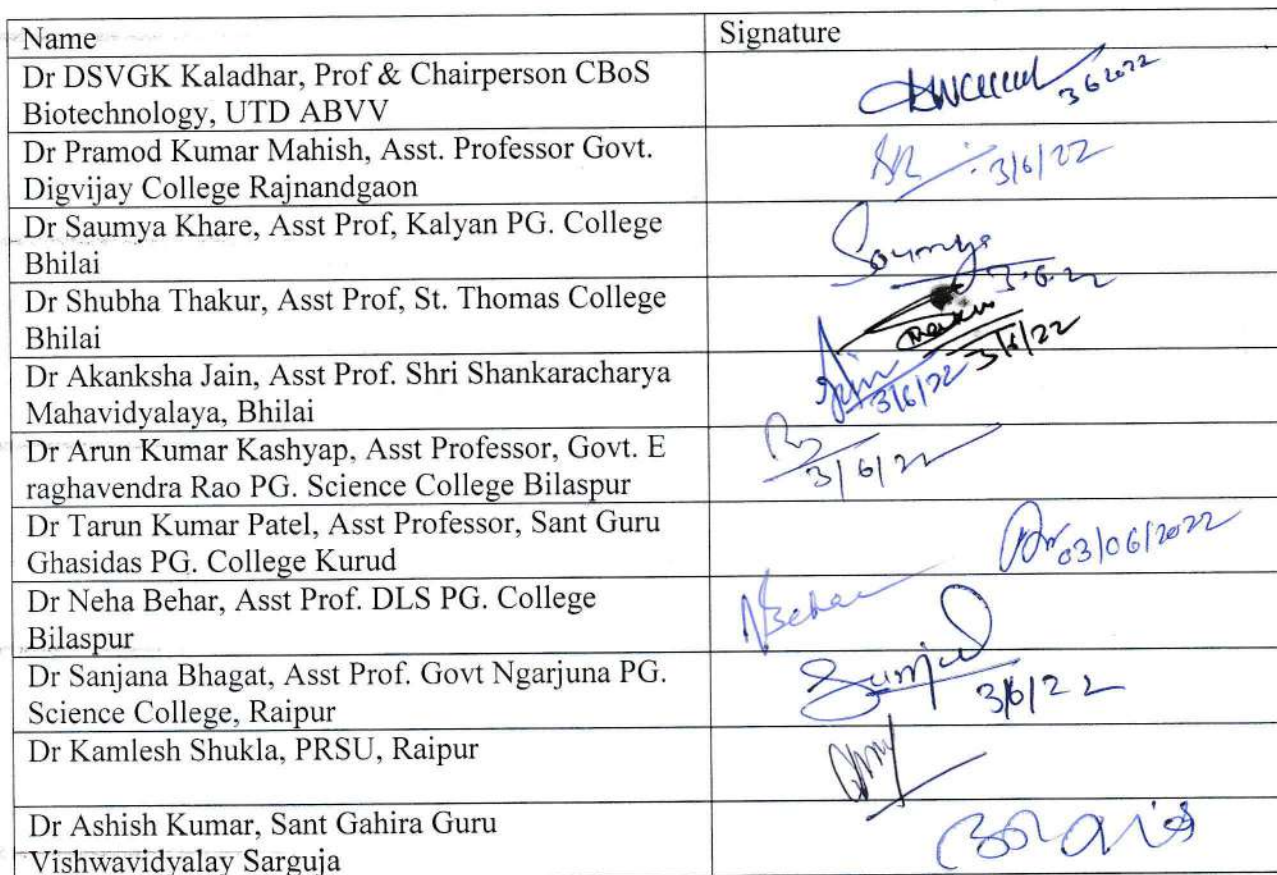 Name
Signature
Dr DSVGK Kaladhar, Prof & Chairperson CBoS
Biotechnology, UTD ABVV
3 6 2022
Dr Pramod Kumar Mahish, Asst. Professor Govt.
Digvijay College Rajnandgaon
3/6/22
Dr Saumya Khare, Asst Prof, Kalyan PG. College
Bhilai
Soumya
3.6.22
Dr Shubha Thakur, Asst Prof, St. Thomas College
Bhilai
3/6/22
Dr Akanksha Jain, Asst Prof. Shri Shankaracharya
Mahavidyalaya, Bhilai
3/6/22
Dr Arun Kumar Kashyap, Asst Professor, Govt. E
raghavendra Rao PG. Science College Bilaspur
3/6/22
Dr Tarun Kumar Patel, Asst Professor, Sant Guru
Ghasidas PG. College Kurud
03/06/2022
Dr Neha Behar, Asst Prof. DLS PG. College
Bilaspur
NBehar
Dr Sanjana Bhagat, Asst Prof. Govt Ngarjuna PG.
Science College, Raipur
3/6/22
Dr Kamlesh Shukla, PRSU, Raipur
Dr Ashish Kumar, Sant Gahira Guru
Vishwavidyalay Sarguja